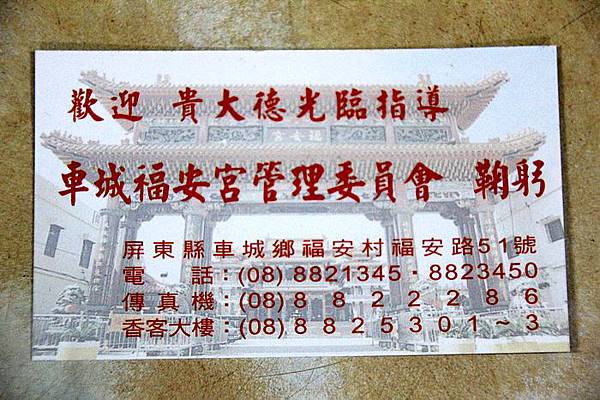 歡迎 貴大德光臨指導
車城福安宮管理委員會 鞠躬
屏東縣車城鄉福安村福安路51號
電話：(08) 8821345・8823450
傳真機：(08) 8822286
香客大樓：(08) 8825301~3